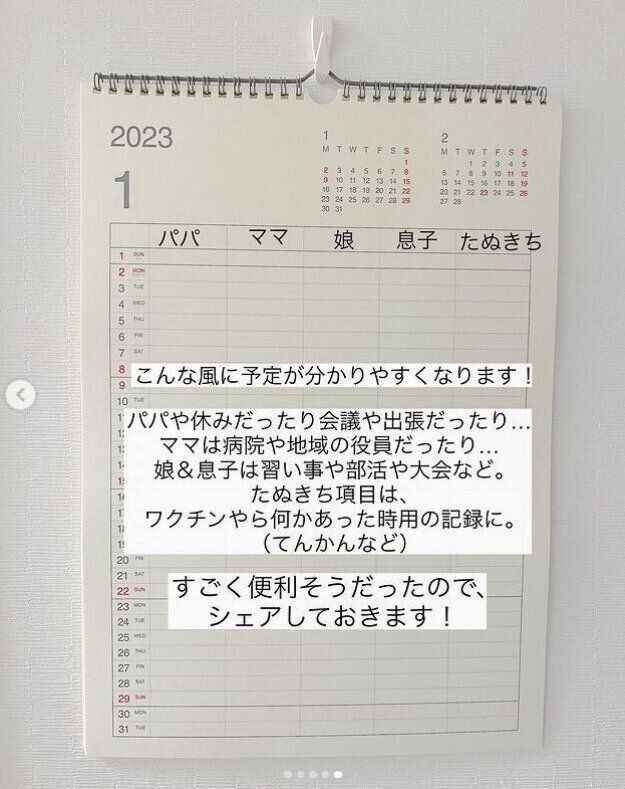 2023
1
1
M T W T F S S
1
2 3 4 5 6 7 8
9 10 11 12 13 14 15
16 17 18 19 20 21 22
23 24 25 26 27 28 29
30 31
2
M T W T F S S
1 2 3 4 5
6 7 8 9 10 11 12
13 14 15 16 17 18 19
20 21 22 23 24 25 26
27 28
パパ ママ 娘 息子 たぬきち
1 SUN
2 MON
3 TUE
4 WED
5 THU
6 FRI
7 SAT
8
こんな風に予定が分かりやすくなります！
9
10 TUE
パパや休みだったり会議や出張だったり…
ママは病院や地域の役員だったり…
娘＆息子は習い事や部活や大会など。
たぬきち項目は、
ワクチンやら何かあった時用の記録に。
（てんかんなど）
20 FRI
21 SAT
22 SUN
すごく便利そうだったので、
シェアしておきます！
23 MON
24 TUE
25 WED
26 THU
27 FRI
28 SAT
29 SUN
30 MON
31 TUE